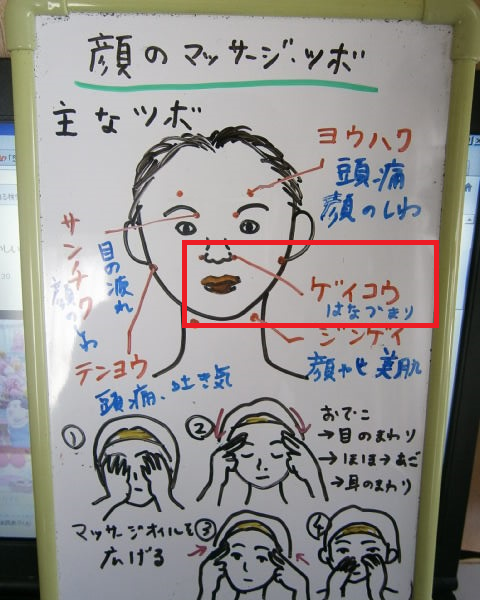 顔のマッサージ・ツボ
主なツボ
ヨウハク
頭痛
顔のしわ
サンチク
目の疲れ
顔のしわ
ゲイコウ
はなづまり
ジンゲイ
顔やせ 美肌
テンヨウ
頭痛、吐き気
①
②
おでこ
→目のまわり
→ほほ→あご
→耳のまわり
マッサージオイルを
広げる
③
④